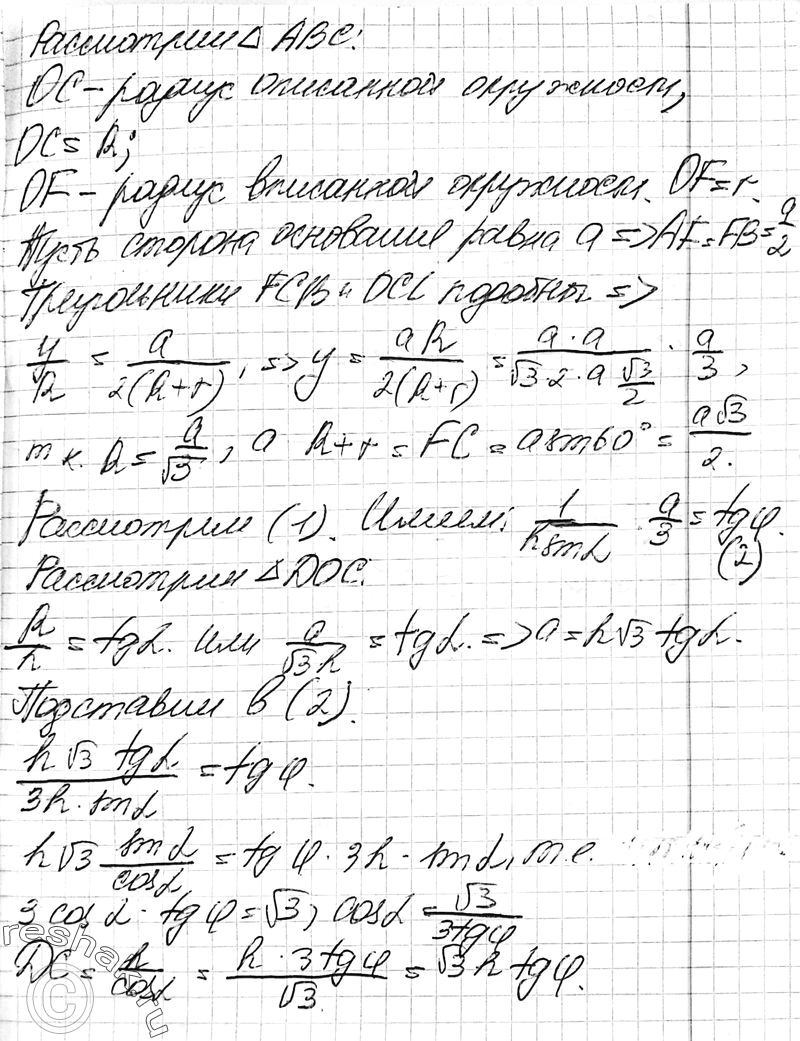 Рассмотрим △ ABC:
OC – радиус описанной окружности,
OC = R;
OF – радиус вписанной окружности. OF = r.
Пусть сторона основания равна a => AF = FB = a/2
Треугольники FCB и OCL подобны =>
y/R = a/(2(R+r)), => y = aR/(2(R+r)) = a·a/(√3·2·a √3/2) · a/3,
т.к. R = a/√3, а R+r = FC = a sin60° = a√3/2.
Рассмотрим (1). Имеем: 1/(h sinα) · a/3 = tgφ. (2)
Рассмотрим △DOC.
R/h = tgα. Или a/(√3h) = tgα. => a = h√3 tgα.
Подставим в (2).
h√3 tgα/(3h·sinα) = tgφ.
h√3 sinα/cosα = tgφ·3h·sinα, т.е.
3cosα·tgφ = √3, cosα = √3/(3tgφ)
DC = h/cosα = h·3tgφ/√3 = √3 h tgφ.
reshak.ru
©